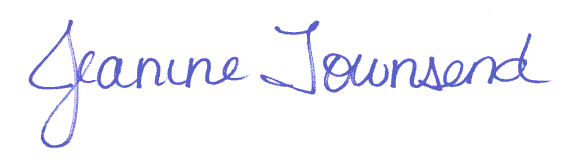 Jeanine Townsend